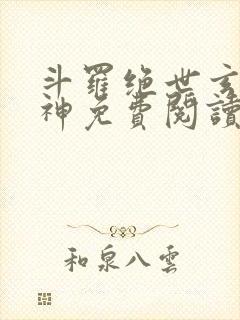 斗羅绝世玄
神免費閱讀
和泉八雲